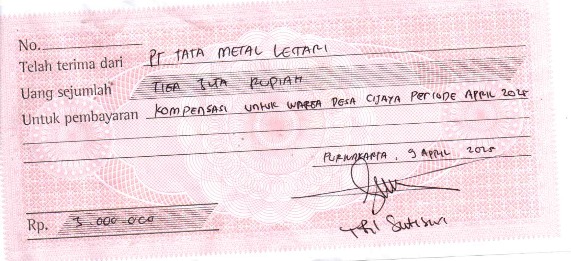 No.
Telah terima dari PT TATA METAL LESTARI
Uang sejumlah TIGA JUTA RUPIAH
Untuk pembayaran KOMPENSASI UNTUK WARGA DESA CIJAYA PERIODE APRIL 2025
PURWAKARTA, 9 APRIL 2025
Rp. 3.000.000
Sutisna